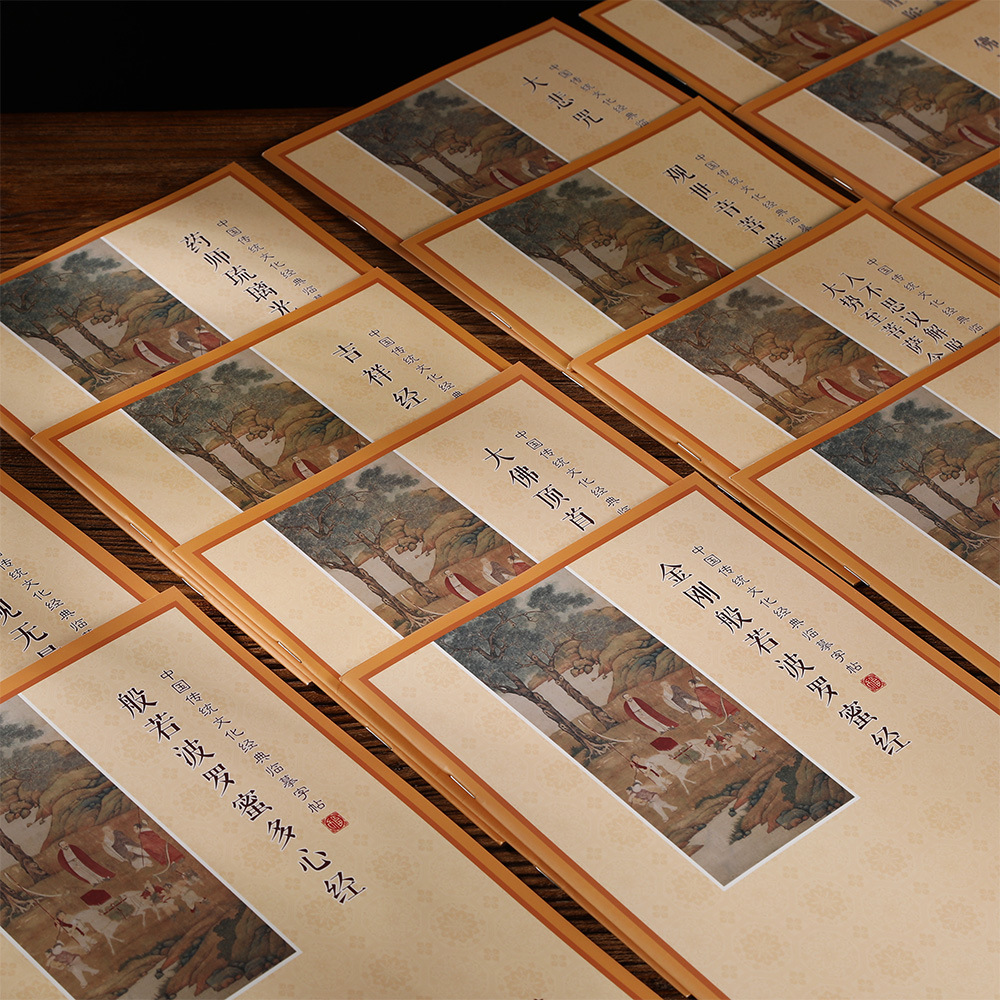 大悲咒
中国传统文化经典临
观世音菩萨
中国传统文化经典
大势至菩萨
入不思议解
中国传统文化经典临
药师琉璃光
中国传统文化经典临
吉祥经
中国传统文化经典
大佛顶首
中国传统文化经典临
金刚般若波罗蜜经
中国传统文化经典临摹字帖
般若波罗蜜多心经
中国传统文化经典临摹字帖
传统文化经典临
无
佛